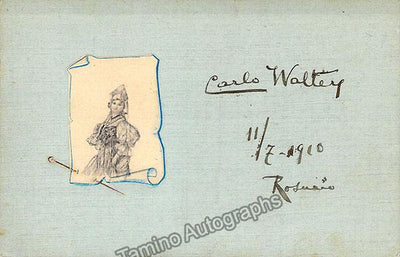 Carlo Walter
11/7-1910
Rosario
Tamino Autographs